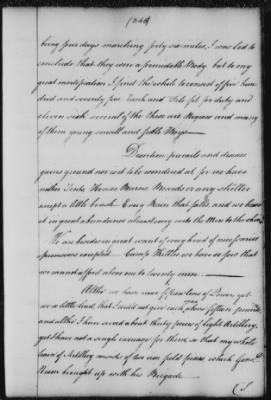 being four days marching forty six miles, I was led to
conclude that they were a formidable Body but to my
great mortification I find the whole to consist of four hun
dred and seventy five Rank and File fit for duty and
eleven sick several of the these are Negroes and many
of them young small and feeble Boys
Desertion prevails and disease
gains ground nor is it to be wondered at for we have
neither Tents Houses Barns Boards or any shelter
except a little brush Every Rain that falls and we have
it in great abundance almost every two the Men to the skin
We are besides in great want of every kind of necessaries
provisions excepted Camp Kettles we have so few that
we cannot afford above one to twenty men
Altho' we have near Tons of Powder, yet
are so little Lead that I could not give each Man above fifteen pounds
and altho' I have scraped about thirty pieces of Light Artillery
yet I have not a single carriage for them, so that my whole
train of Artillery consists of two iron field pieces which Genl
Nixon brought up with his Brigade